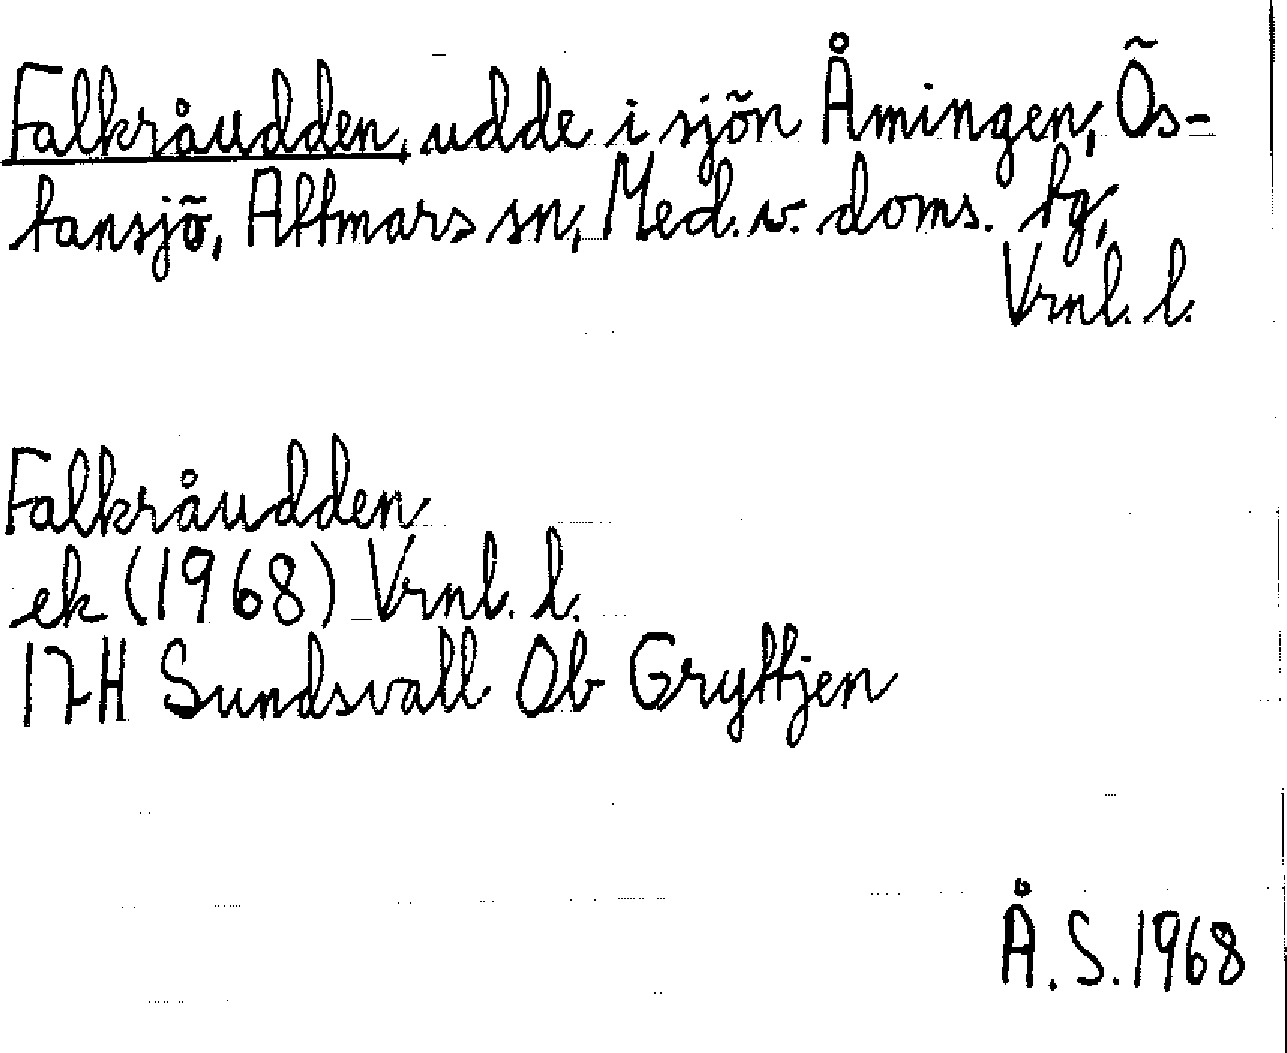 Falkråudden, udde i sjön Åmingen, Ös-
tansjö, Attmars sn, Med. v. doms. tg,
Vrnl. l.
Falkråudden
ek (1968) Vrnl. l.
17H Sundsvall 0b Gryttjen
Å. S. 1968